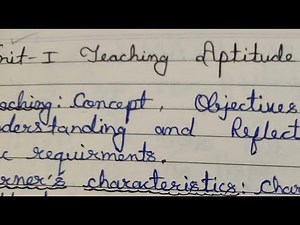 Unit-I Teaching Aptitude
Teaching: Concept, Objectives
Understanding and Reflect
requirments.
characteristics: Char